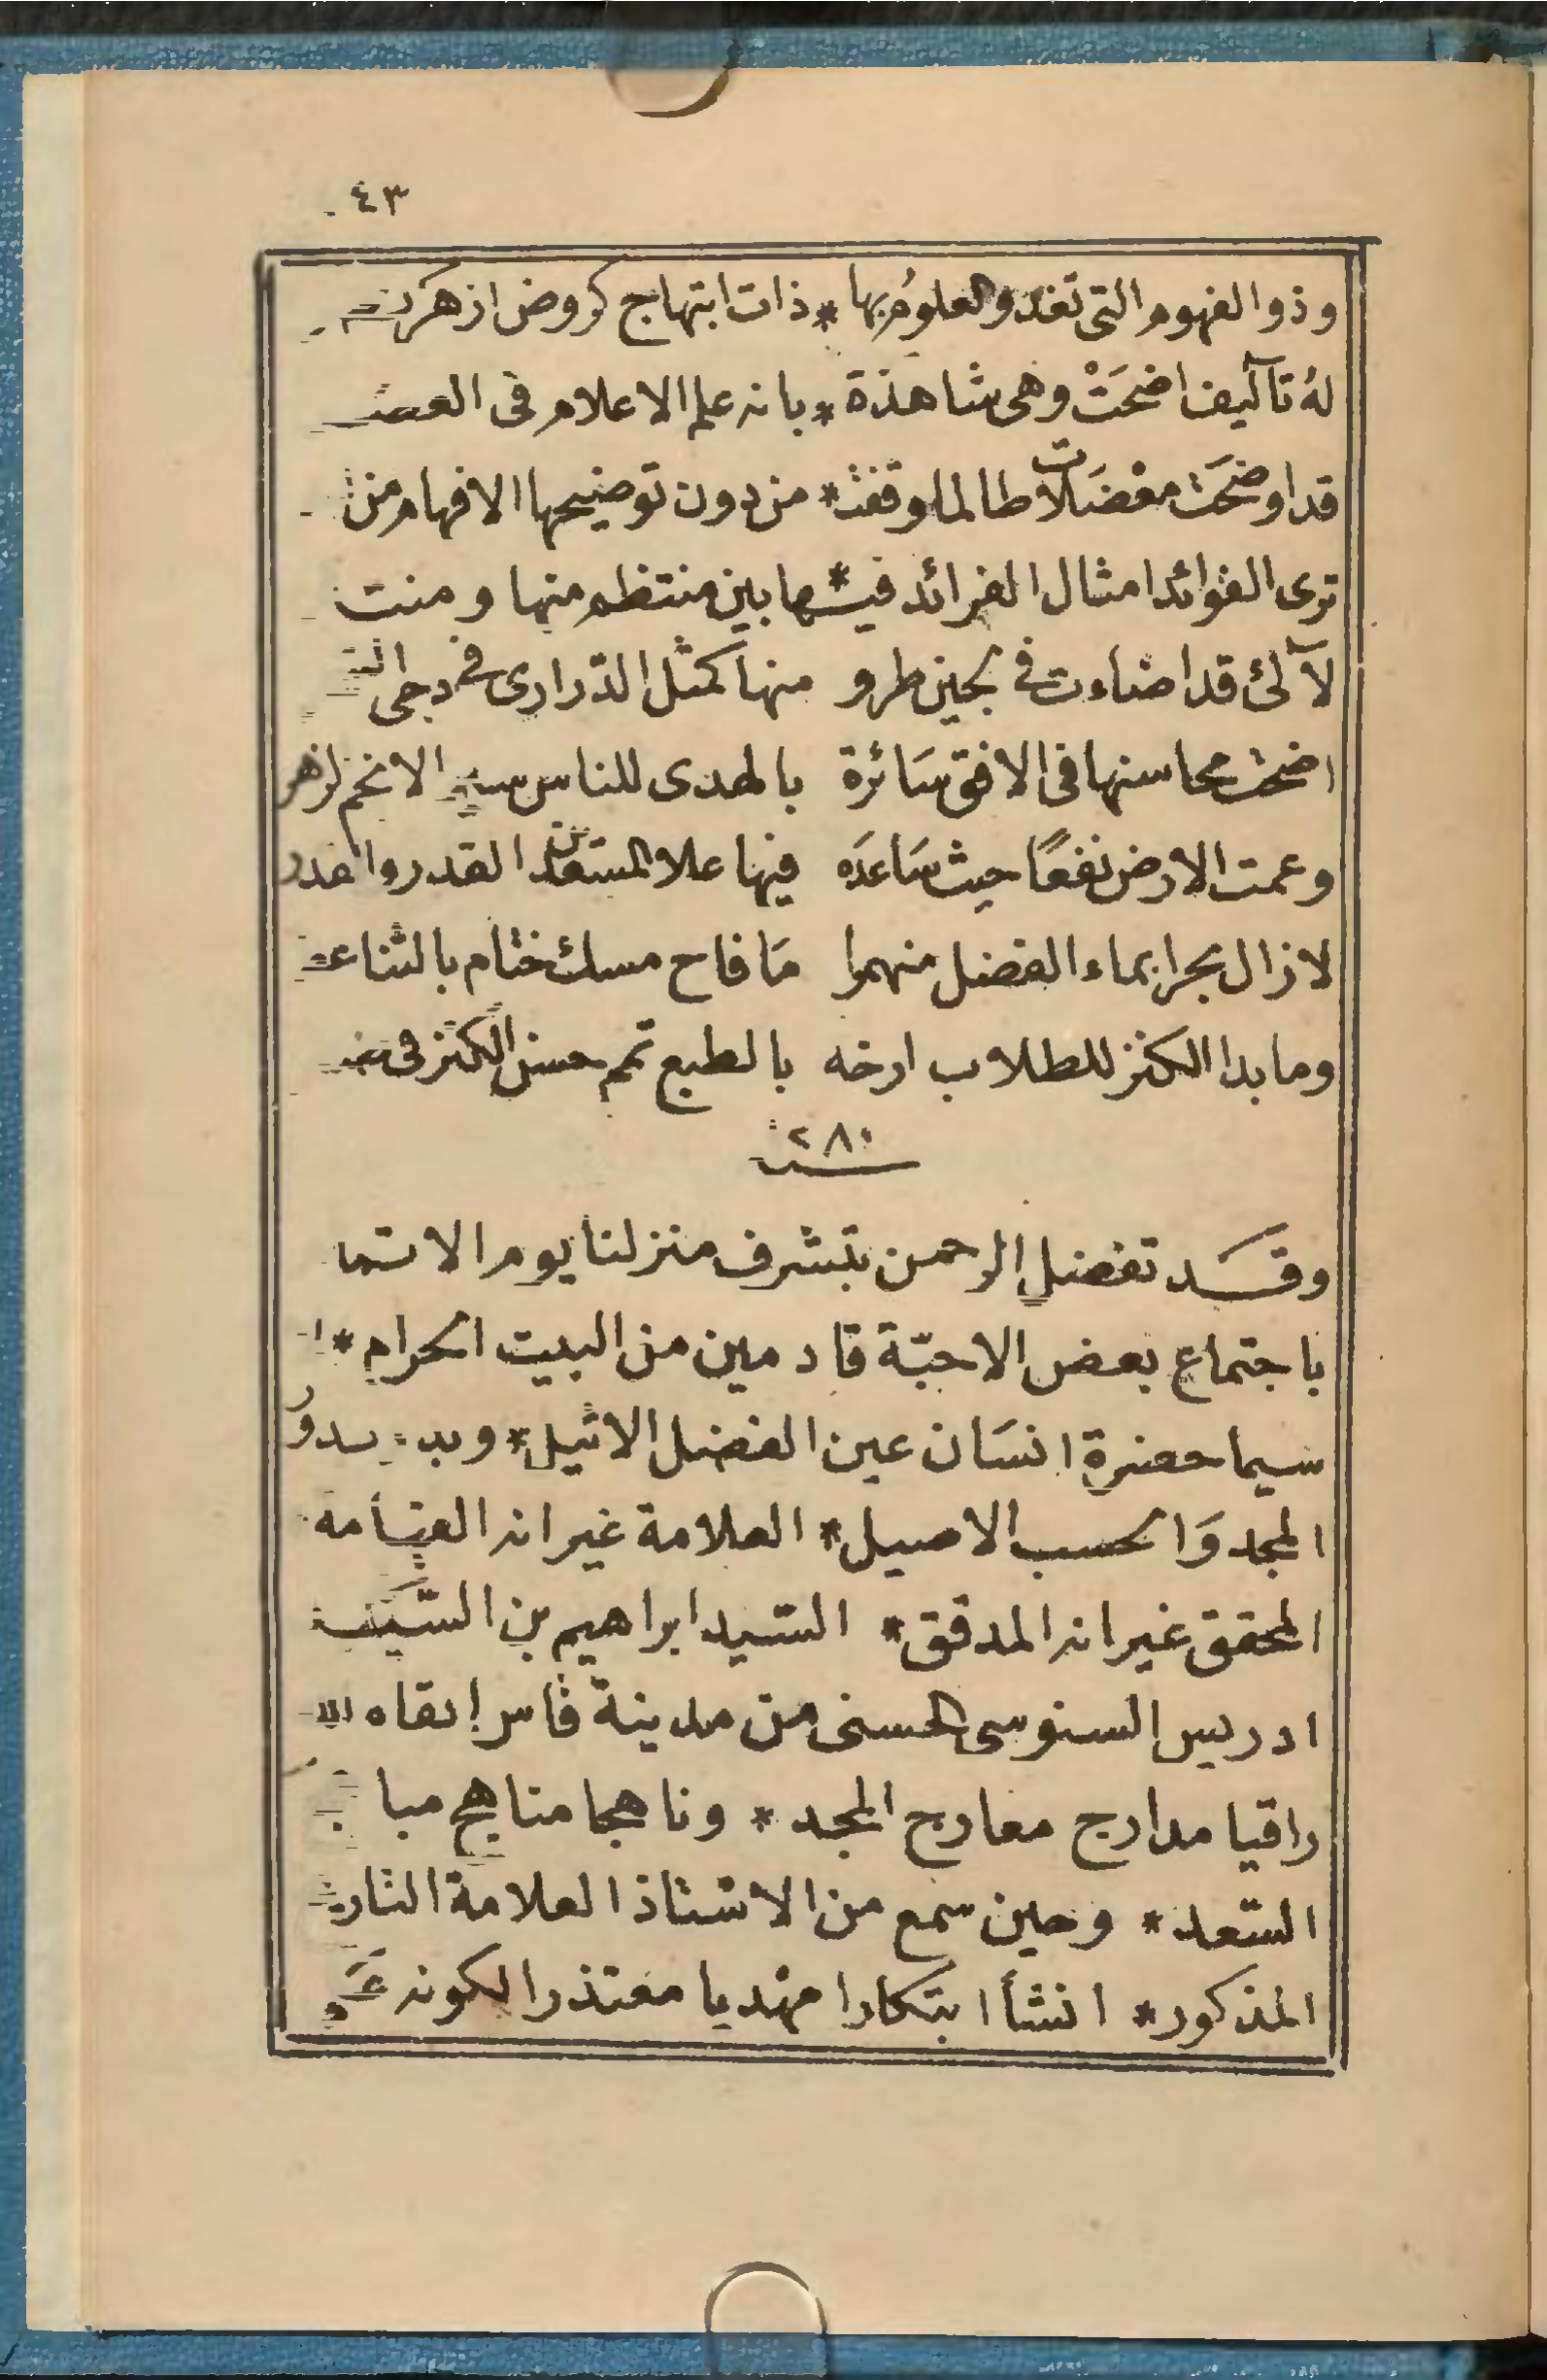 ٤٣
وذو الفهوم التى تغدو العلومُ بها * ذات ابتهاج كروض ازهر
لهُ تآليف اضحَتْ وهى شاهدة * بانه علم الاعلام فى العصر
قد اوضحَت معْضَلات طالما وقفت * من دون توضيحها الافهام من
ترى الفوائد امثال الفرائد فيـها * بين منتظم منها ومنت
لآلئ قد اضاءت فى لجين طرو منها كمثل الدّرارى فى دجى
اضحت محاسنها فى الافق سَائرة بالهدى للناس سير الانجم لزهر
وعمت الارض نفعًا حيث سَاعدَه فيها علا المستعين القدر والقدر
لا زال بحرا بماء الفضل منهمرا مَا فاح مسك ختام بالثنا
وما بدا الكنز للطلاب ارخه بالطبع تم حسن الكنز فى
٢٨٠
وقـد تفضل الرحمن بتشرف منزلنا يوم الاتما
باجتماع بعض الاحبّة قادمين من البيت الحرام *
سيما حضرة انسَان عين الفضل الاثيل *
المجد وَالحسب الاصيل * العلامة غير انه الفهّامه
المحقق غير انه المدقق * السّيد ابراهيم بن السّيد
ادريس السنوسى الحسنى من مدينة فاس ابقاه الله
راقيا مدارج معارج المجد * وناهجا مناهج مبا
السّعد * وحين سمع من الاستاذ العلامة التاريخ
المذكور * انشأ ابتكارا مهْديا معتذرا لكونه